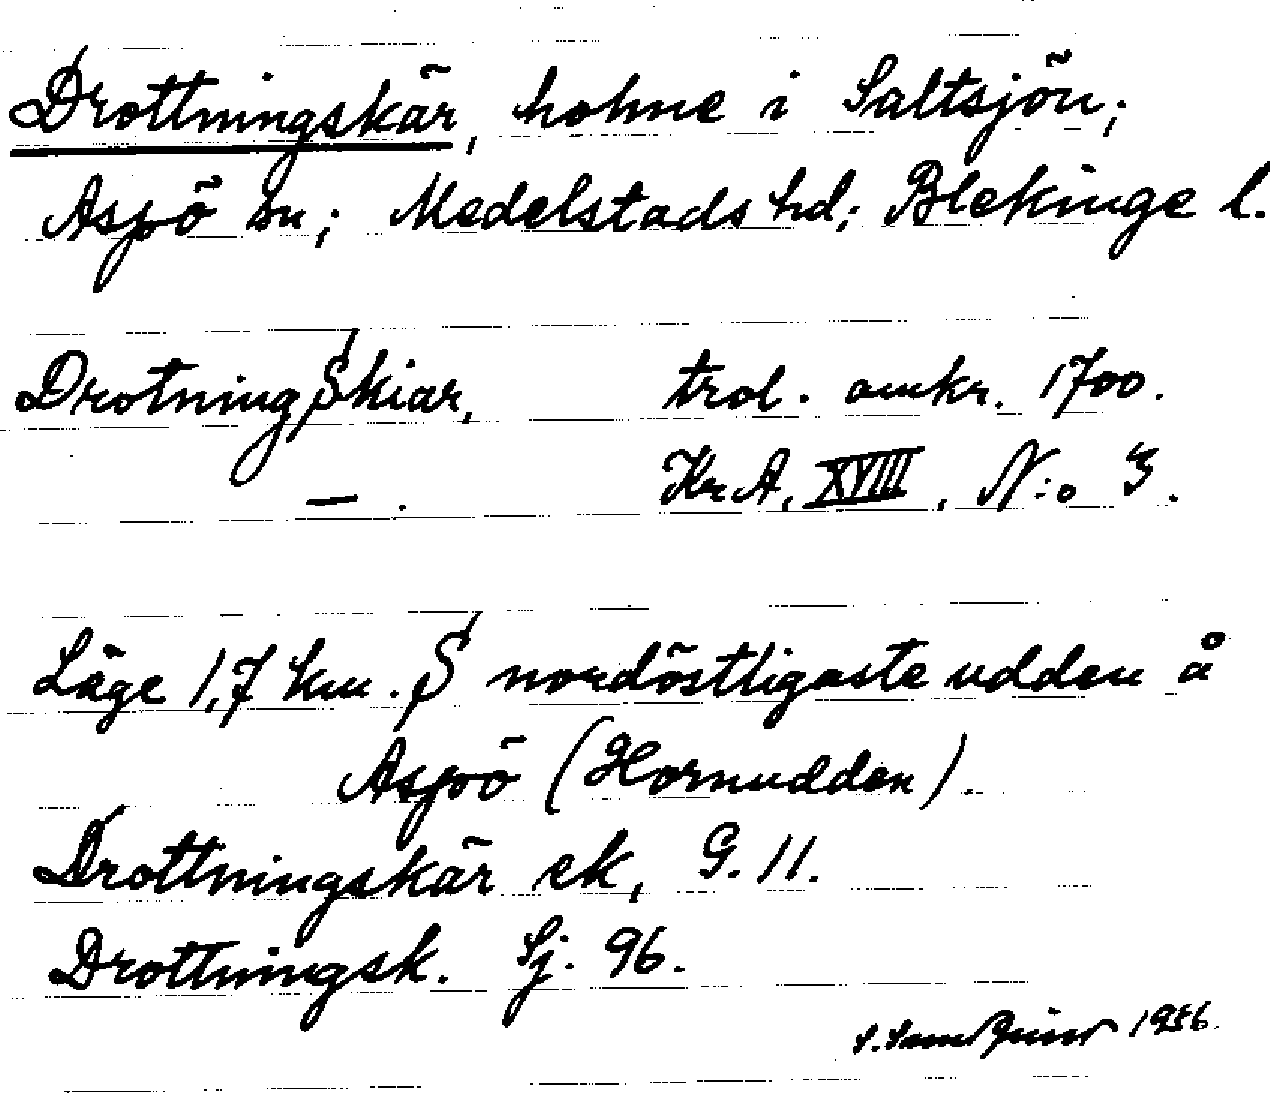 Drottningskär, holme i Saltsjön;
Aspö sn; Medelstads hd; Blekinge l.
Drotning Skiar, trol. omkr. 1700.
— . KrA, XVIII, N:o 3.
Läge 1,7 km. S nordöstligaste udden å
Aspö (Hornudden).
Drottningskär ek, G. 11.
Drottningsk. Sj. 96.
1956.